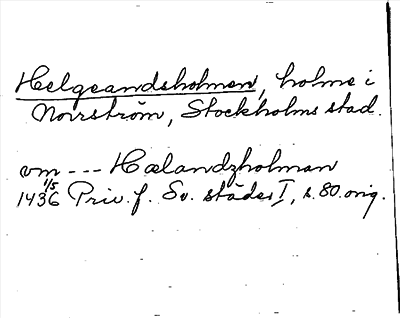 Helgeandsholmen, holme i
Norrström, Stockholms stad.
om --- Hælandzholman
1/5
1436 Priv. f. Sv. städer I, s. 80. orig.